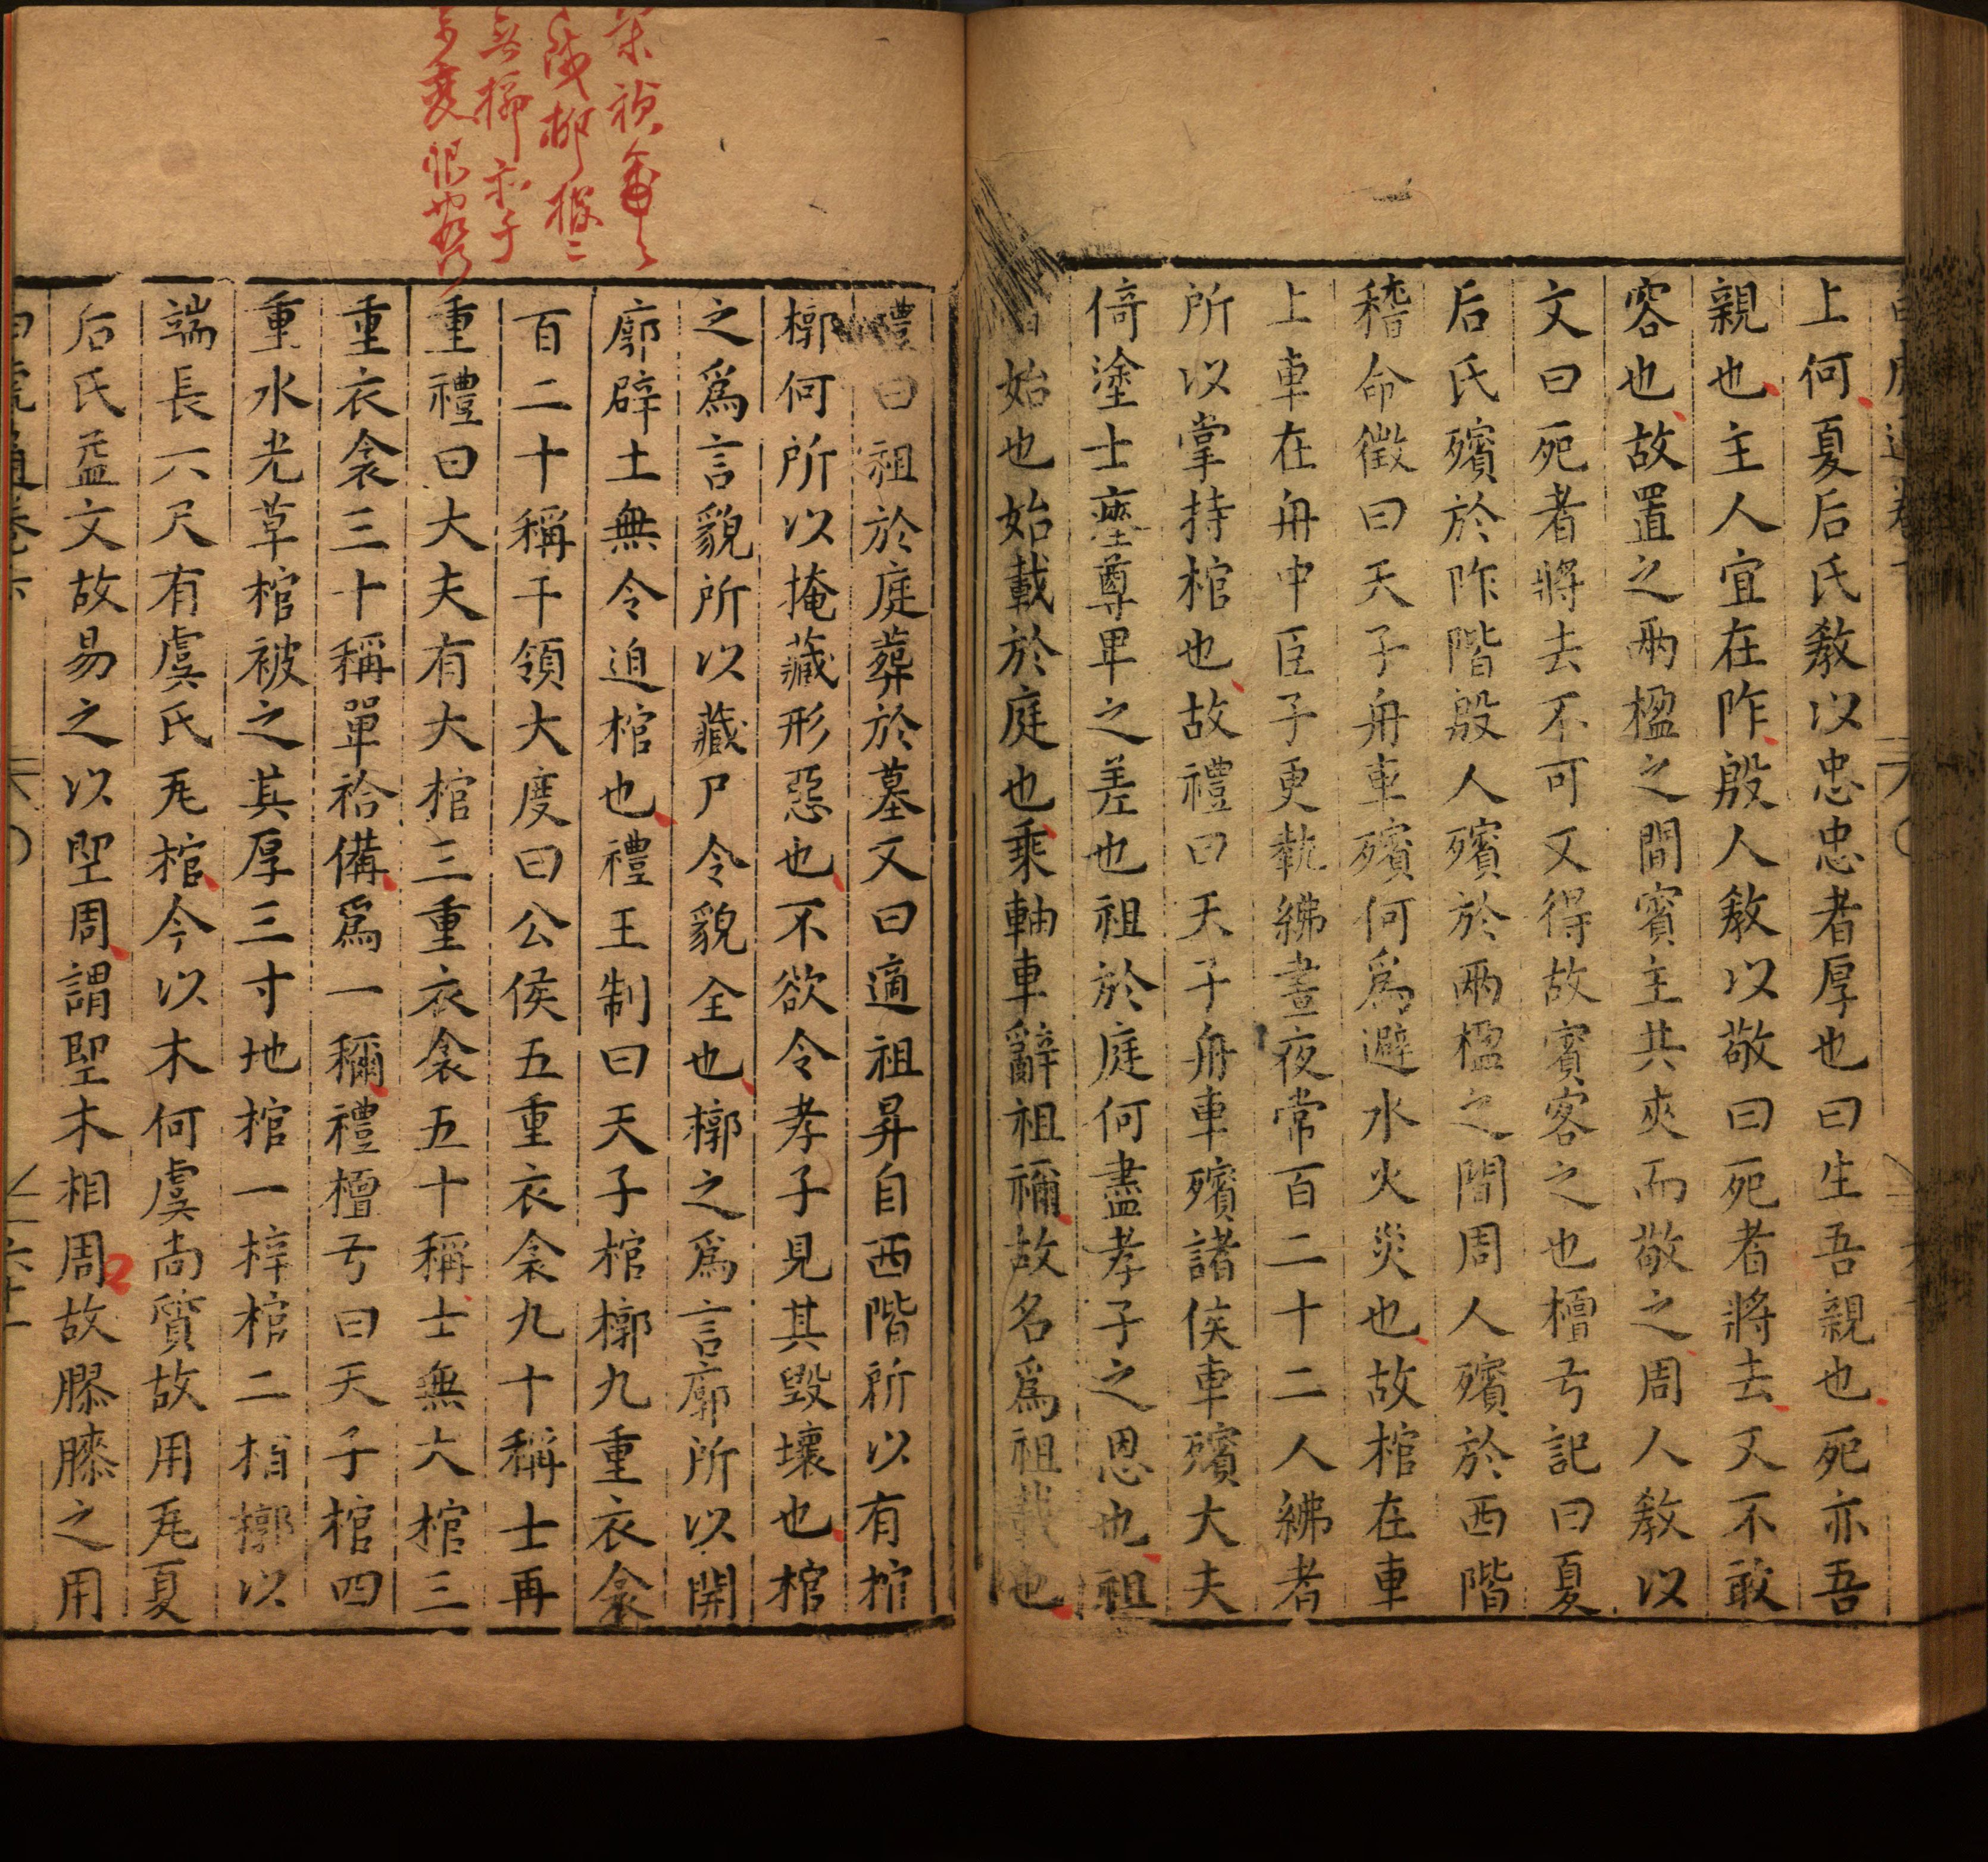 上何夏后氏教以忠忠者厚也曰生吾親也死亦吾
親也主人宜在阼殷人教以敬曰死者將去又不敢
容也故置之兩楹之間賓主共夾而敬之周人教以
文曰死者將去不可又得故賓客之也檀弓記曰夏
后氏殯於阼階殷人殯於兩楹之間周人殯於西階
稽命徵曰天子舟車殯何爲避水火災也故棺在車
上車在舟中臣子更執紼晝夜常百二十二人紼者
所以掌持棺也故禮曰天子舟車殯諸侯車殯大夫
倚塗士塗尊卑之差也祖於庭何盡孝子之恩也祖
始也始載於庭也乘軸車辭祖禰故名爲祖載也
禮曰祖於庭葬於墓又曰適祖昇自西階所以有棺
槨何所以掩藏形惡也不欲令孝子見其毀壞也棺
之爲言貌所以藏尸令貌全也槨之爲言廓所以開
廓辟土無令迫棺也禮王制曰天子棺槨九重衣衾
百二十稱千領大度曰公侯五重衣衾九十稱士再
重禮曰大夫有大棺三重衣衾五十稱士無大棺三
重衣衾三十稱單袷備爲一稱禮檀弓曰天子棺四
重水光草棺被之其厚三寸地棺一梓棺二栢槨以
端長六尺有虞氏瓦棺今以木何虞尚質故用瓦夏
后氏益文故易之以堲周謂堲木相周故膠膝之用